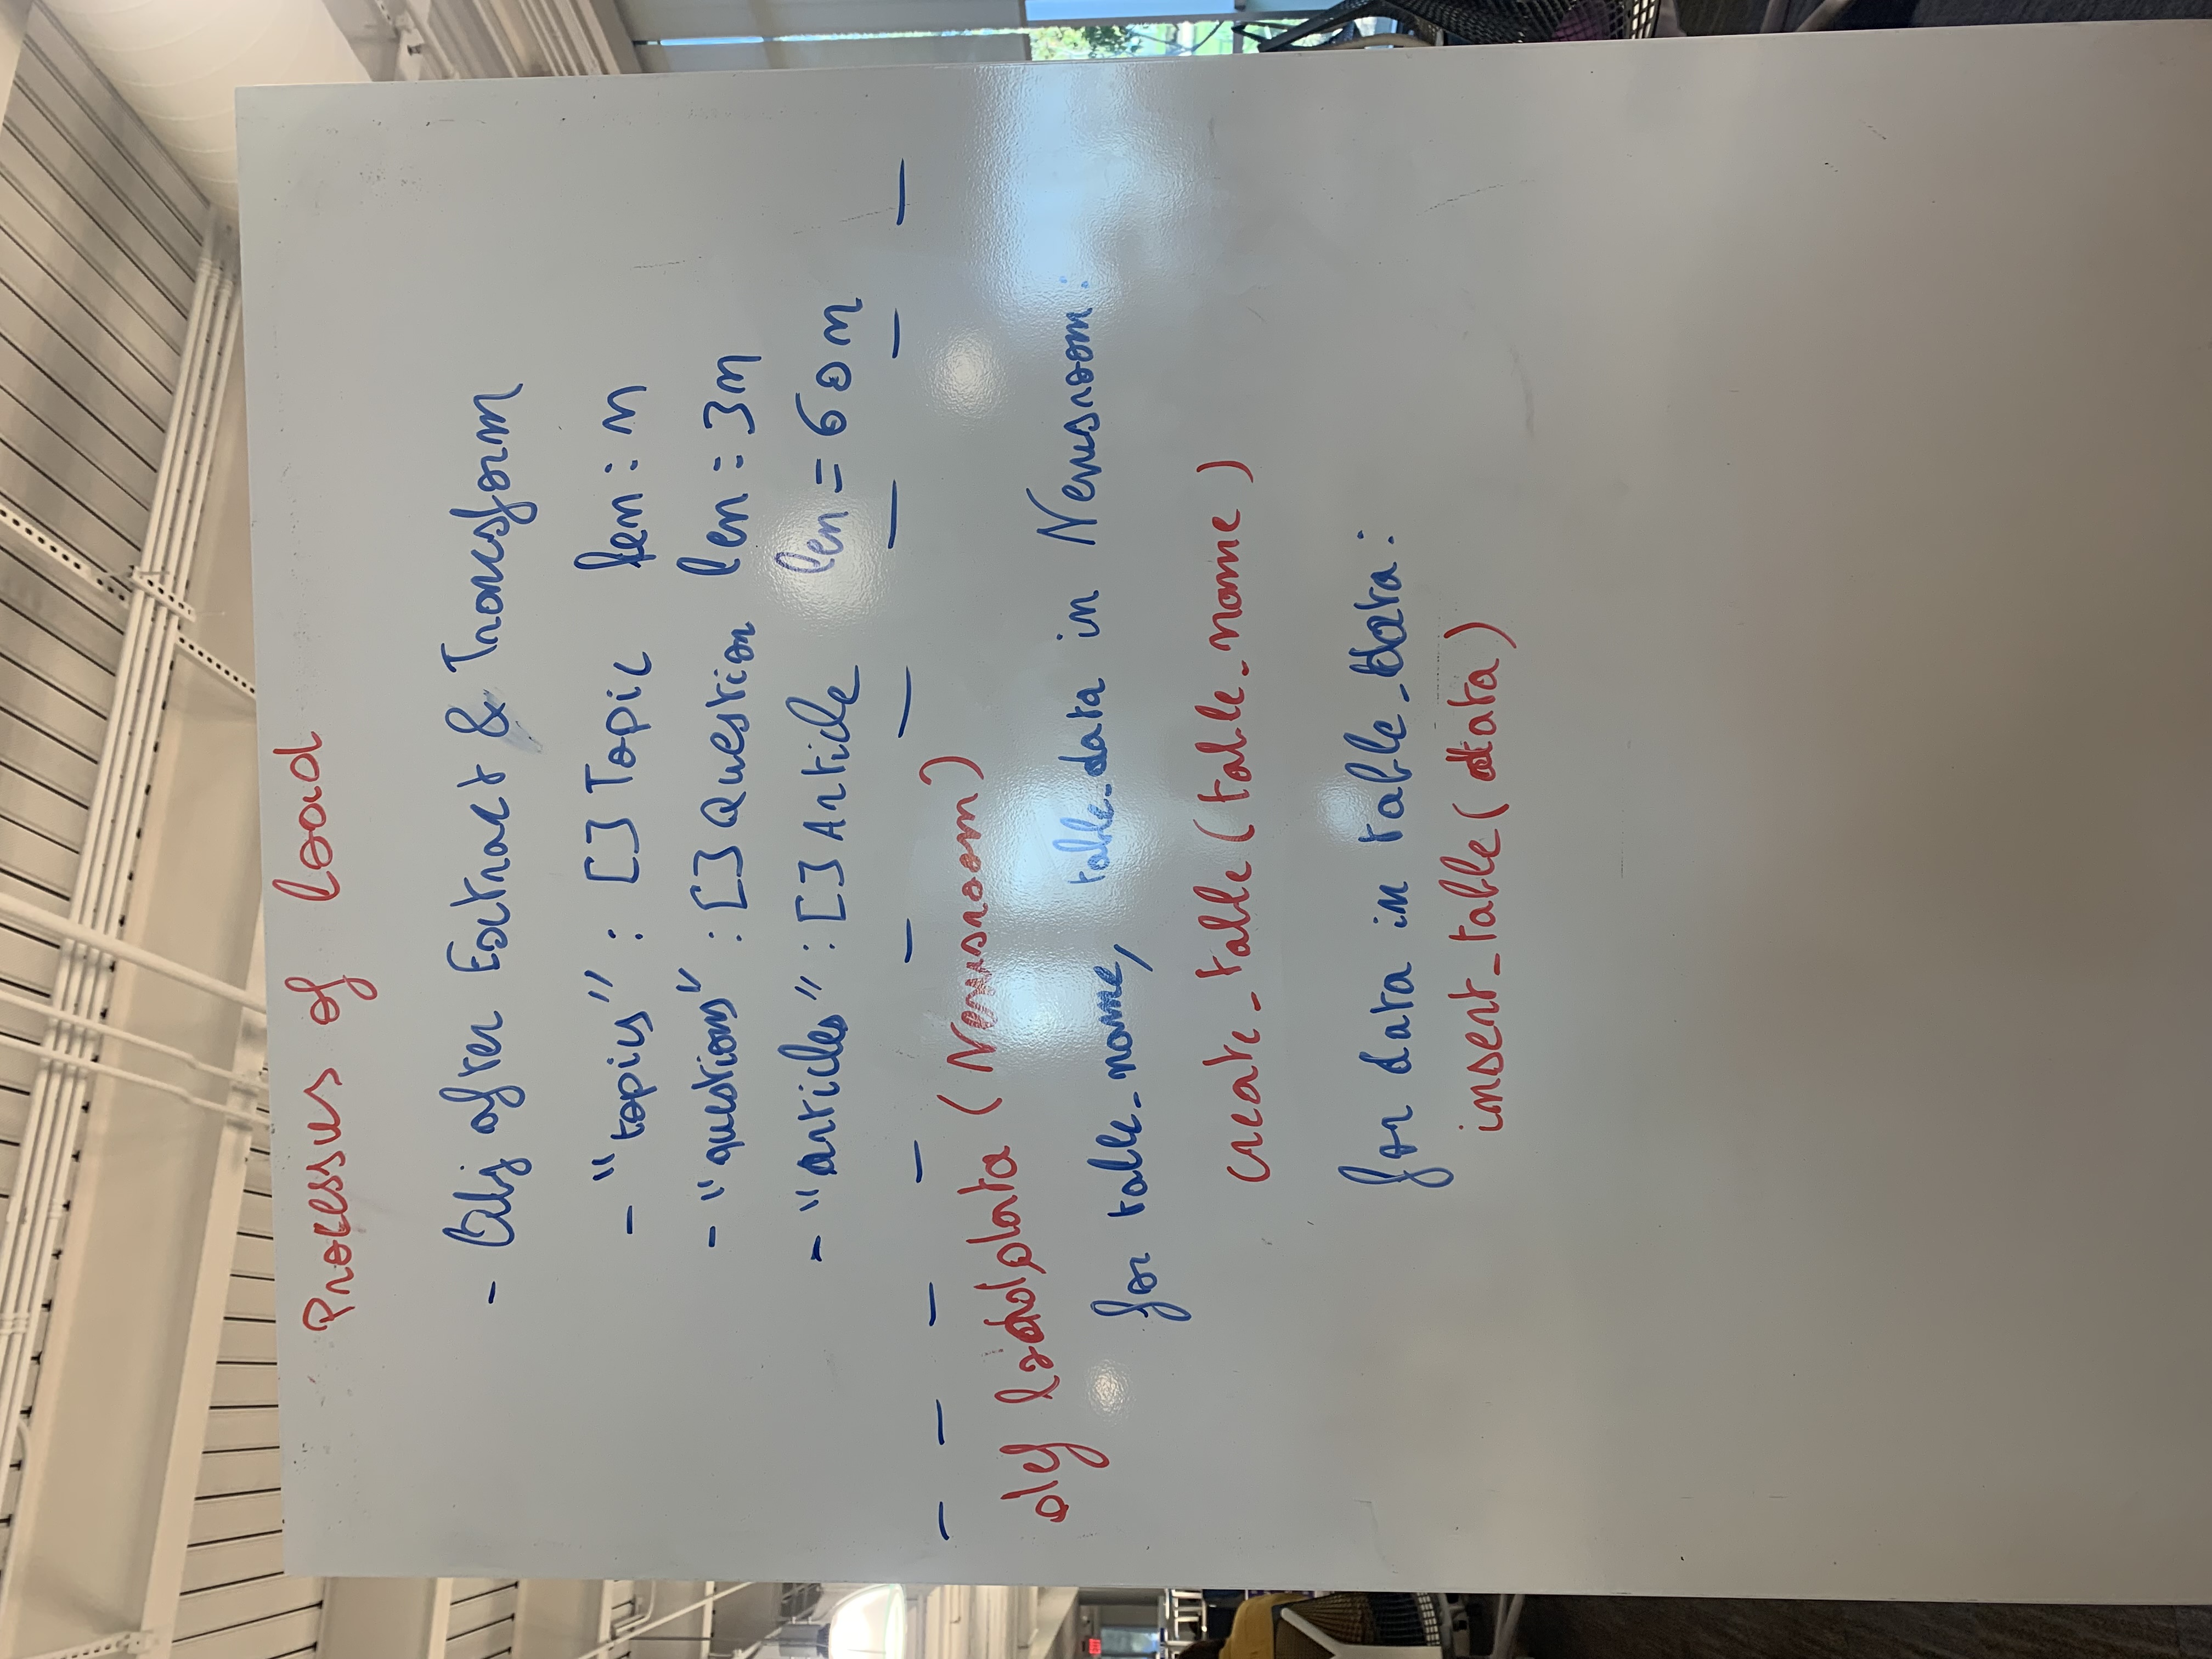 Processus of load
- Obj after Extract & Transform
- "topics" : [] Topic len : n
- "questions" : [] Question len = 3n
- "articles" : [] Article len = 60n
def load_data (Newsroom)
for table_name, table_data in Newsroom :
create_table (table_name)
for data in table_data :
insert_table (data)